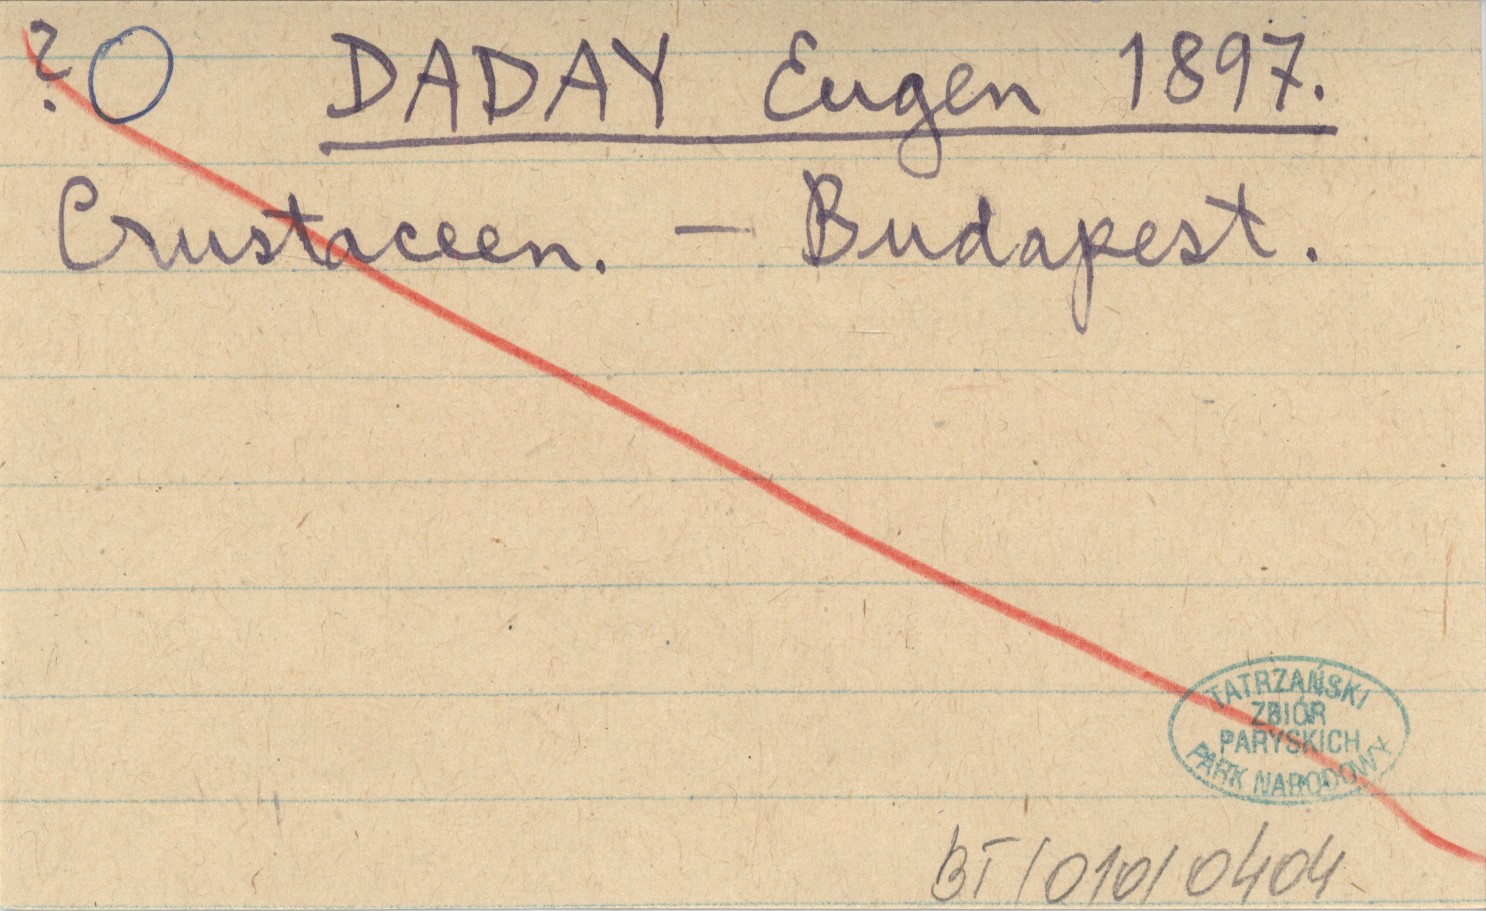 ? O DADAY Eugen 1897.
Crustaceen. — Budapest.
TATRZAŃSKI
ZBIÓR
PARYSKICH
PARK NARODOWY
BT/010/0404